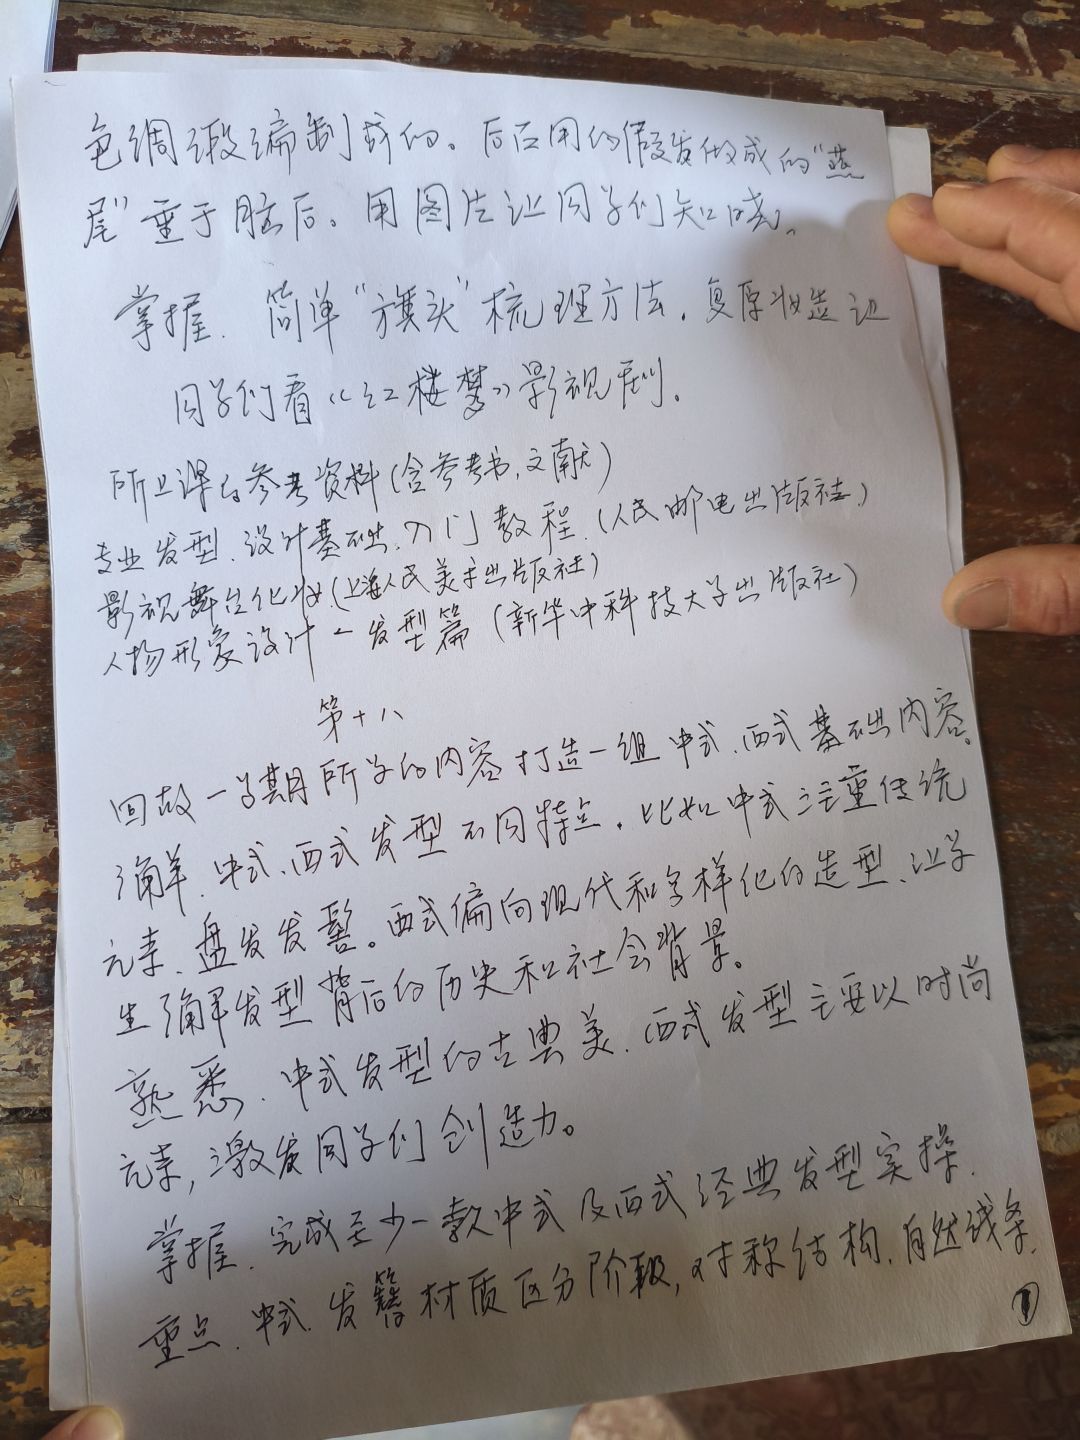 色调缎编制成的。后面用的假发做成的“燕
尾”垂于脑后。用图片让同学们知晓。
掌握.简单“旗头”梳理方法.复原妆造让
同学们看《红楼梦》影视剧.
所上课的参考资料(含参考书,文献)
专业发型.设计基础.入门教程.(人民邮电出版社)
影视舞台化妆.(上海人民美术出版社)
人物形象设计-发型篇(新华中科技大学出版社)
第十八
回故一学期所学的内容打造一组中式.西式基础内容。
了解.中式、西式发型不同特点.比如中式注重传统
元素、盘发发髻。西式偏向现代和多样化的造型、让学
生了解发型背后的历史和社会背景。
熟悉.中式发型的古典美.西式发型主要以时尚
元素,激发同学们创造力。
掌握.完成至少一款中式及西式经典发型实操.
重点.中式.发簪材质区分阶级,对称结构.自然线条.